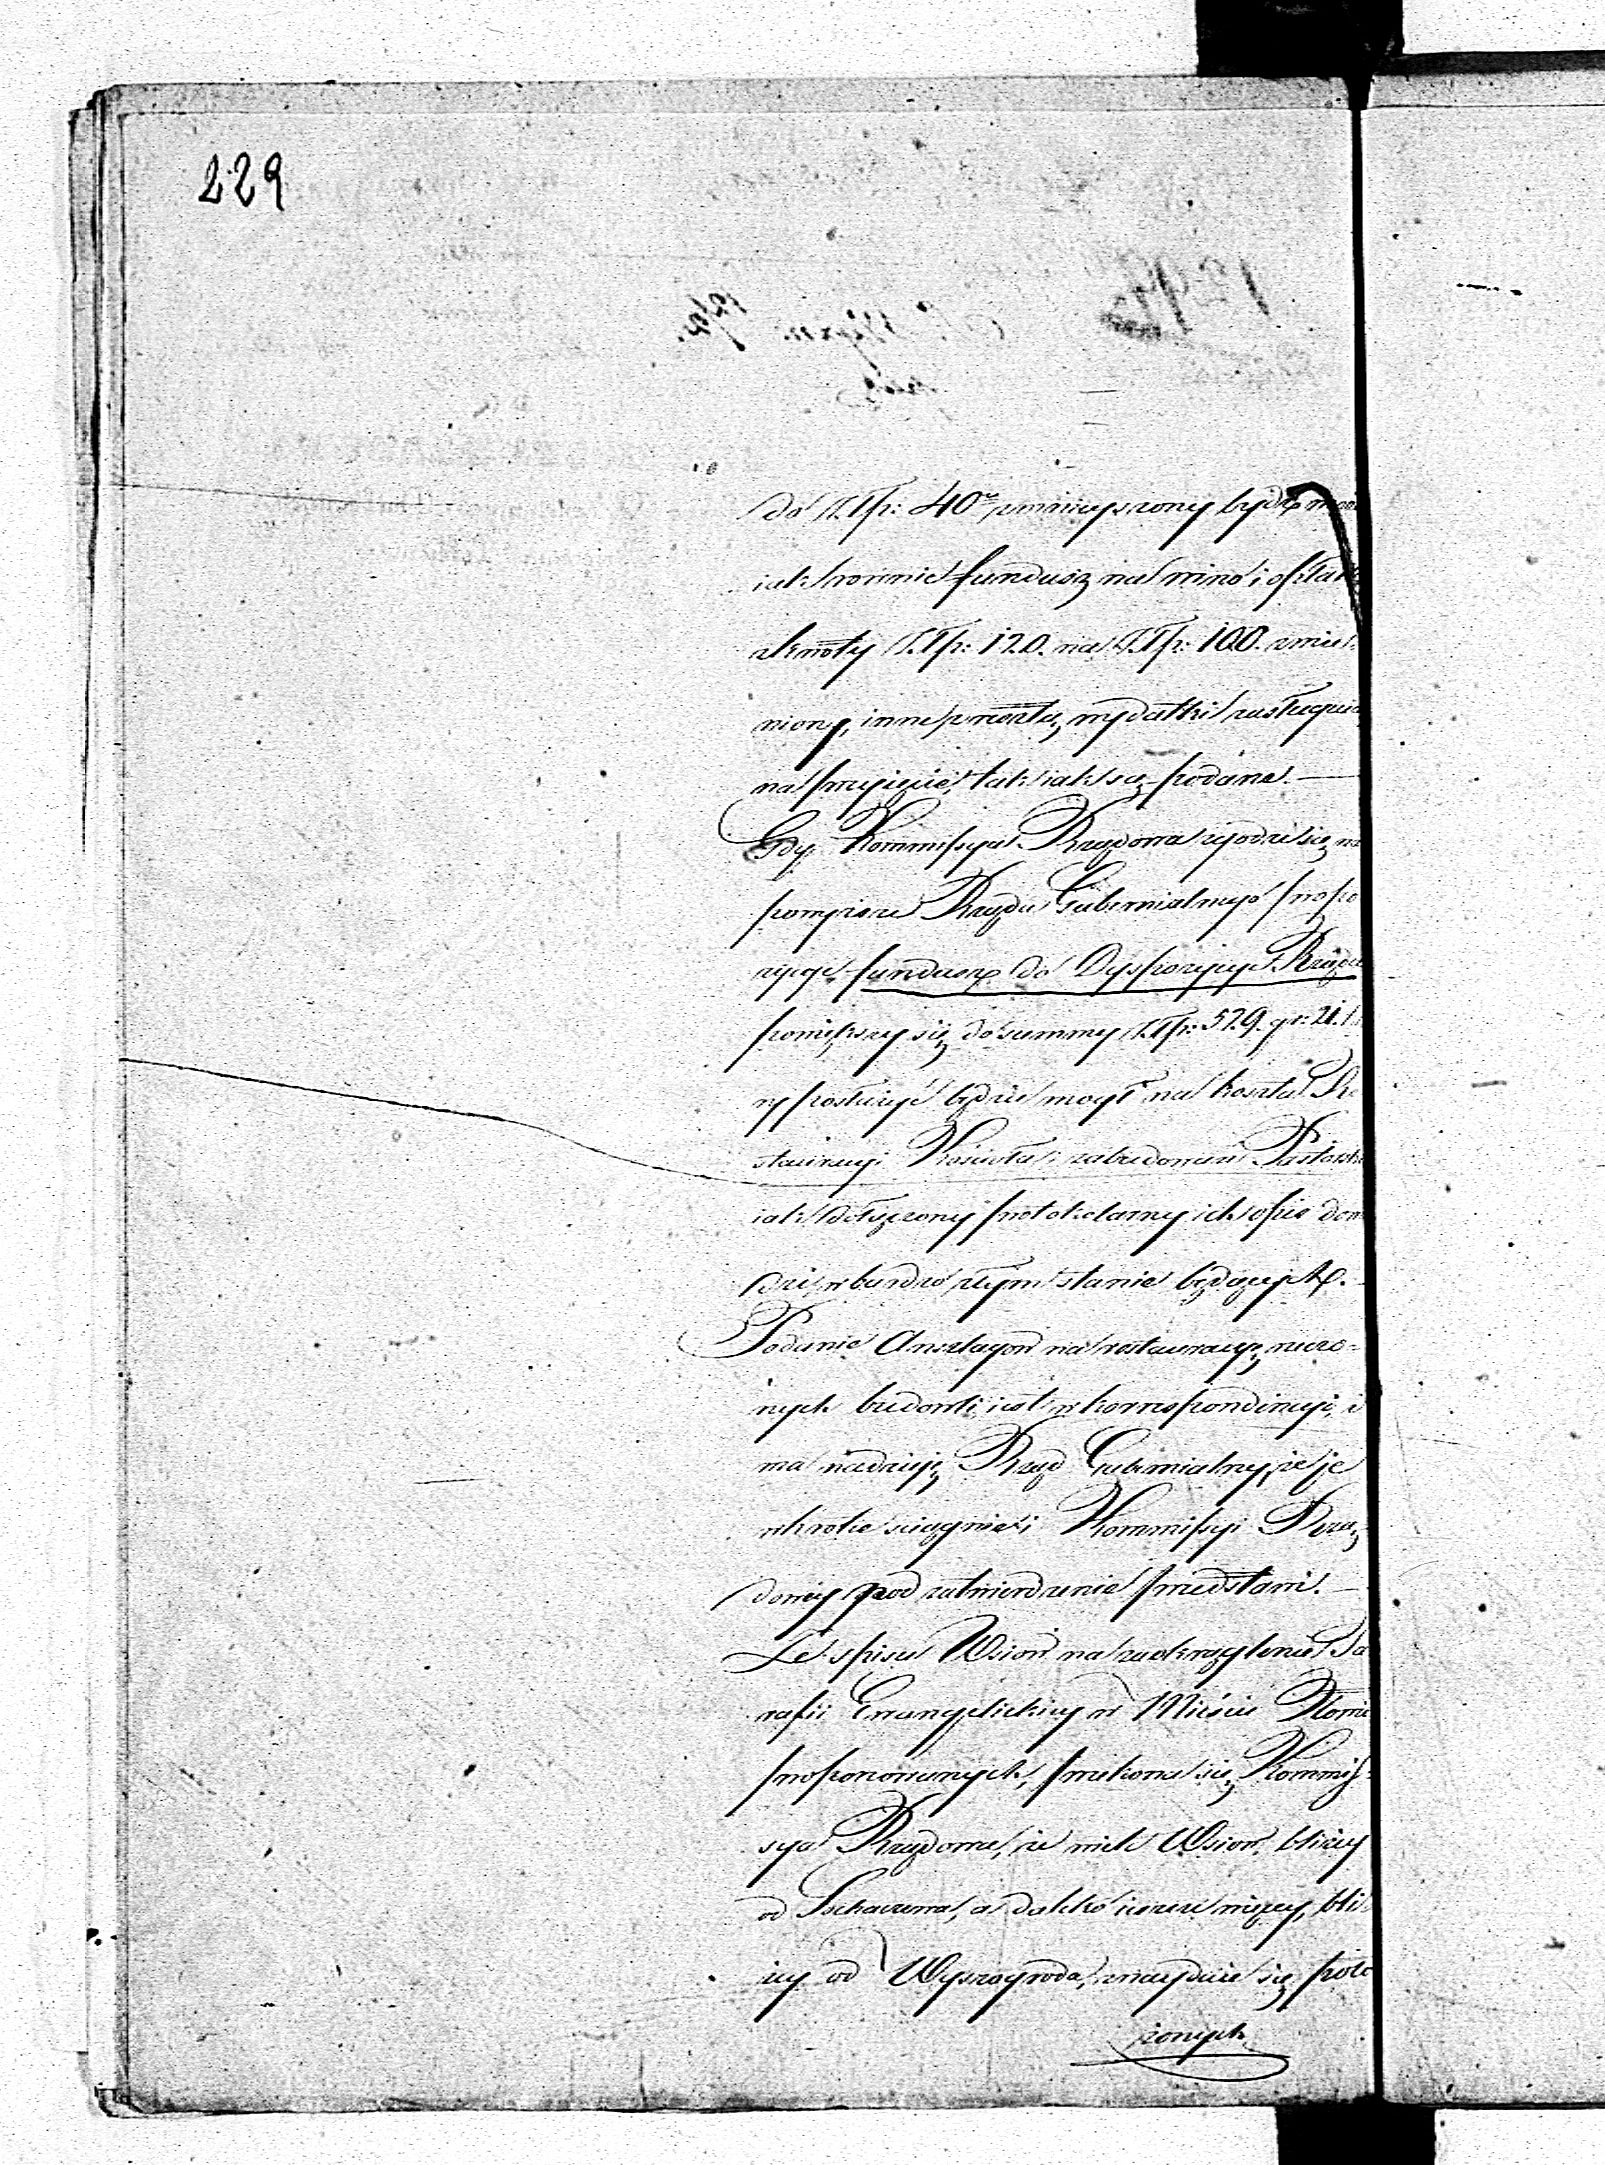 229
do Złp: 40 zmnieyszony bydź
iak równie fundusz na wino i opłatki
z kwoty Złp: 120. na Złp: 100. zmie-
niony, inne zresztą wydatki zasługuią
na przyięcie, tak iak są podane.
Gdy Kommissya Rządowa zgodzi się na
powyższe Rządu Gubernialnego propo
zycye, fundusz do Dyspozycyi Rządu
powiększy się do summy Złp: 529. gr: 21.
ry posłużyć będzie mógł na koszta Re
stauracyi Kościoła i zabudowań Pastorski
iak dołączony protokolarny ich opis dowo
dzi, w bardzo złym stanie będących.
Podanie Anszlagów na restauracyę rzeczo-
nych budowli iest w korrespondencyi, i
ma nadzieję Rząd Gubernialny, że je
wkrótce ściągnie i Kommissyi Rzą-
dowey pod zatwierdzenie przedstawi.
Ze spisu Wsiów na zaokrąglenie Pa
rafii Ewangelickiey w Mieście Iłowie
proponowanych, przekona się Kommis-
sya Rządowa, że wiele Wsiów, bliżey
od Sochaczewa, a daleko ieszcze więcey, bli
żey od Wyszogroda, znayduie się poło
żonych